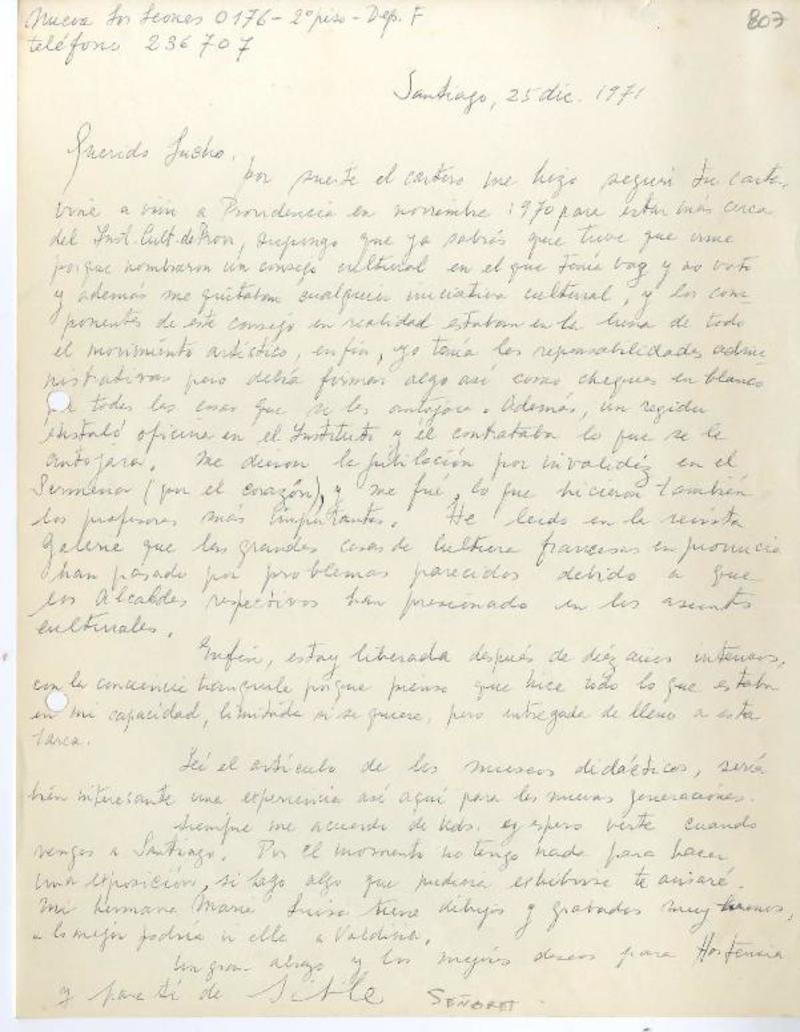 Nueva Los Leones 0176 - 2º piso - Dep. F
807
teléfono 236707
Santiago, 25 dic. 1971
Querido Lucho,
por suerte el cartero me hizo seguir tu carta.
Vine a vivir a Providencia en noviembre 1970 para estar más cerca
del Inst. Cult. de Prov, supongo que ya sabrás que tuve que irme
porque nombraron un consejo cultural en el que tenía voz y no voto
y además me quitaban cualquier iniciativa cultural, y los com-
ponentes de este consejo en realidad estaban en la luna de todo
el movimiento artístico, en fin, yo tenía las reponsabilidades admi
nistrativas pero debía firmar algo así como cheques en blanco
todas las cosas que se les antojara. Además, un regidor
instaló oficina en el Instituto y él contrataba lo que se le
antojara. Me dieron la jubilación por invalidéz en el
Sermena (por el corazón), y me fuí, lo que hicieron también
los profesores más importantes. He leído en la revista
Galerie que las grandes casas de cultura francesas en provincia
han pasado por problemas parecidos debido a que
los Alcaldes respectivos han presionado en los asuntos
culturales.
Enfin, estoy liberada después de diéz años intensos,
con la conciencia tranquila porque pienso que hice todo lo que estaba
en mi capacidad, limitada si se quiere, pero entregada de lleno a esta
tarea.
Leí el artículo de los museos didácticos, sería
bien interesante una experiencia así aquí para las nuevas generaciones.
Siempre me acuerdo de Uds. y espero verte cuando
vengas a Santiago. Por el momento no tengo nada para hacer
una exposición, si hago algo que pudiera exhibirse te avisaré.
Mi hermana María Luisa tiene dibujos y grabados muy buenos,
a lo mejor podría ir ella a Valdivia.
Un gran abrazo y los mejores deseos para Hostensia
y para tí de Sible SEÑORET